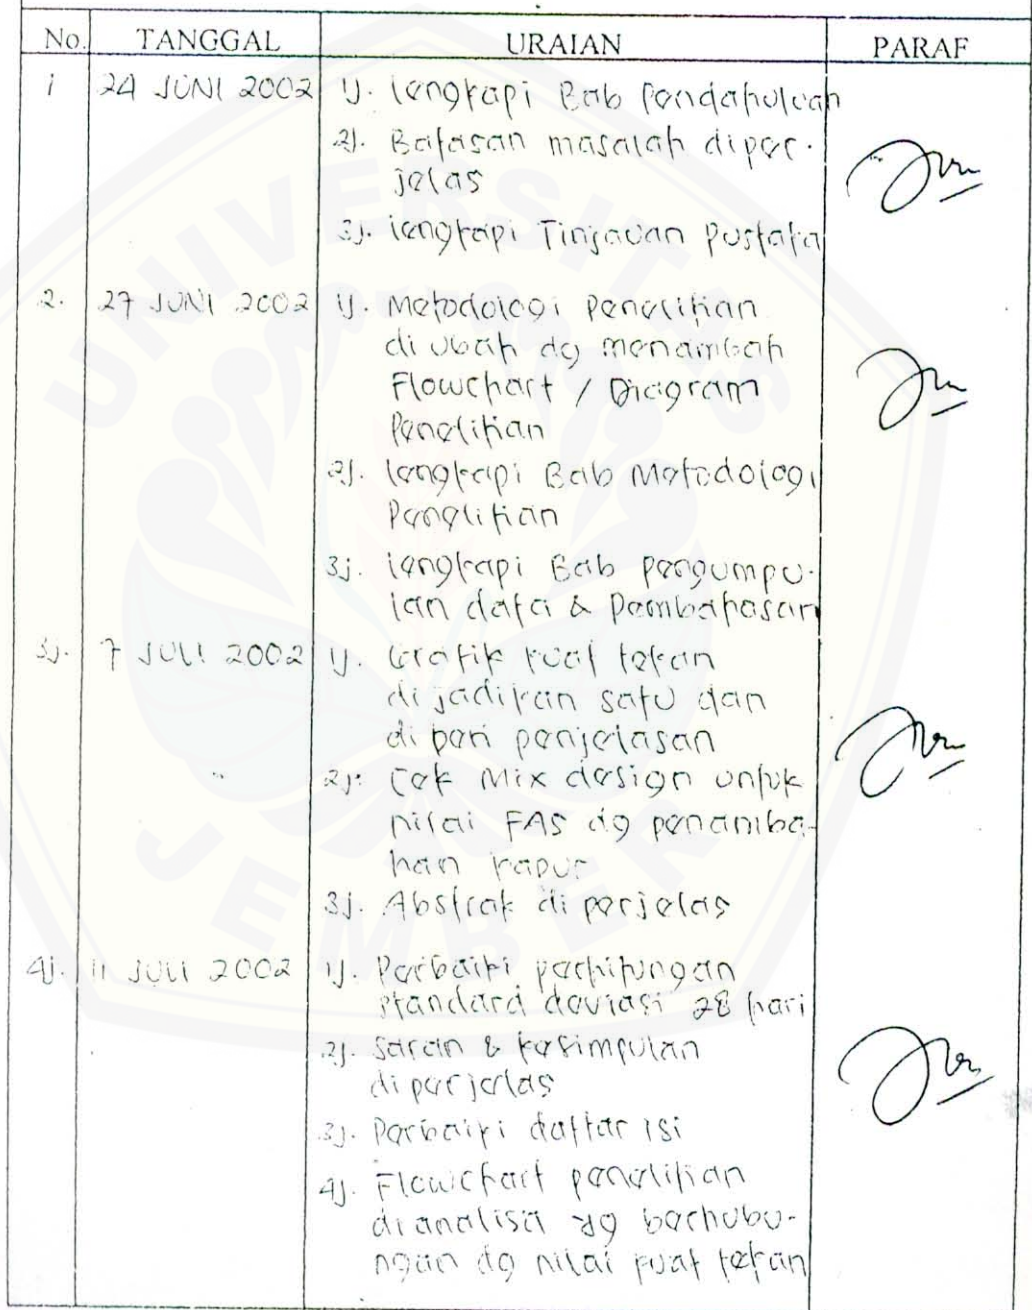 No. TANGGAL URAIAN PARAF
1 24 JUNI 2002 1). Lengkapi Bab Pendahuluan
2). Batasan masalah diper-
jelas
3). Lengkapi Tinjauan Pustaka
2. 27 JUNI 2002 1). Metodologi Penelitian
di ubah dg menambah
Flowchart / Diagram
Penelitian
2). Lengkapi Bab Metodologi
Penelitian
3). Lengkapi Bab pengumpu-
lan data & Pembahasan
3). 7 JULI 2002 1). Grafik kuat tekan
di jadikan satu dan
di beri penjelasan
2). Cek Mix design untuk
nilai FAS dg penamba-
han kapur
3). Abstrak di perjelas
4). 11 JULI 2002 1). Perbaiki perhitungan
standard deviasi 28 hari
2). Saran & kesimpulan
di perjelas
3). Perbaiki daftar isi
4). Flowchart penelitian
dianalisa yg berhubu-
ngan dg nilai kuat tekan
UNIVERSITAS
JEMBER